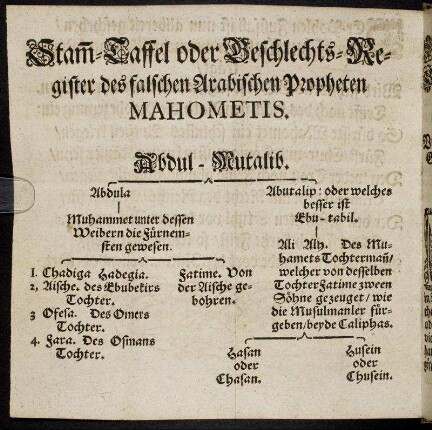 Stam̃-Taffel oder Geschlechts-Re-
gister des falschen Arabischen Propheten
MAHOMETIS.
Abdul-Mutalib.
Abdula
Muhammet unter dessen
Weibern die Fürnem-
sten gewesen.
1. Chadiga Hadegia.
2, Aische. des Ebubekirs
Tochter.
3 Ofesa. Des Omers
Tochter.
4. Fara. Des Osmans
Tochter.
Fatime. Von
der Aische ge-
bohren.
Abutalip: oder welches
besser ist
Ebu-tabil.
Ali Alh. Des Mu-
hamets Tochtermañ/
welcher von desselben
Tochter Fatime zween
Söhne gezeuget/wie
die Musulmanler für-
geben/beyde Caliphas.
Hasan
oder
Chasan.
Husein
oder
Chusein.